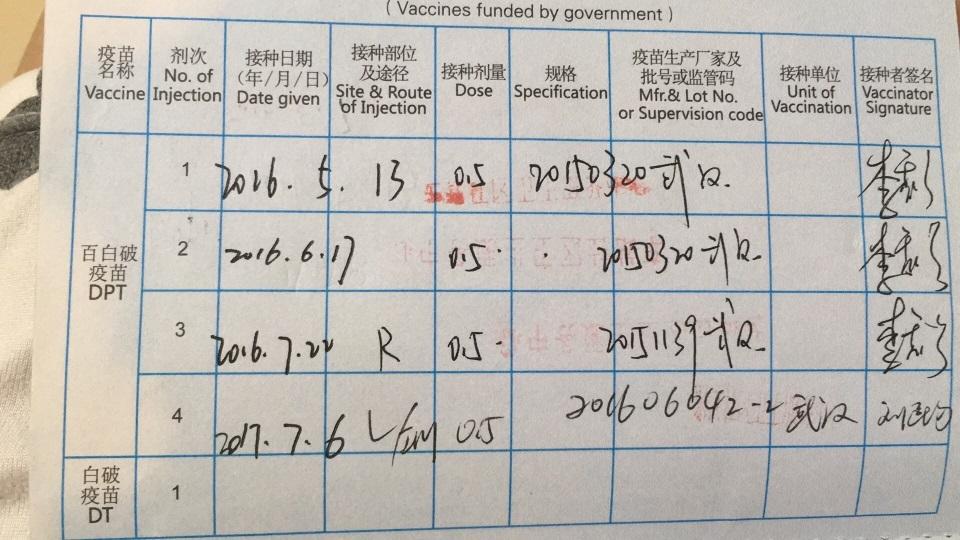 ( Vaccines funded by government )
疫苗
名称
Vaccine
剂次
No. of
Injection
接种日期
(年/月/日)
Date given
接种部位
及途径
Site & Route
of Injection
接种剂量
Dose
规格
Specification
疫苗生产厂家及
批号或监管码
Mfr.& Lot No.
or Supervision code
接种单位
Unit of
Vaccination
接种者签名
Vaccinator
Signature
百白破
疫苗
DPT
1 2016.5.13 0.5 20150320 武汉
2 2016.6.17 0.5 20150320 武汉
3 2016.7.22 R 0.5 20151139 武汉
4 2017.7.6 L/im 0.5 201606042-2 武汉
白破
疫苗
DT
1